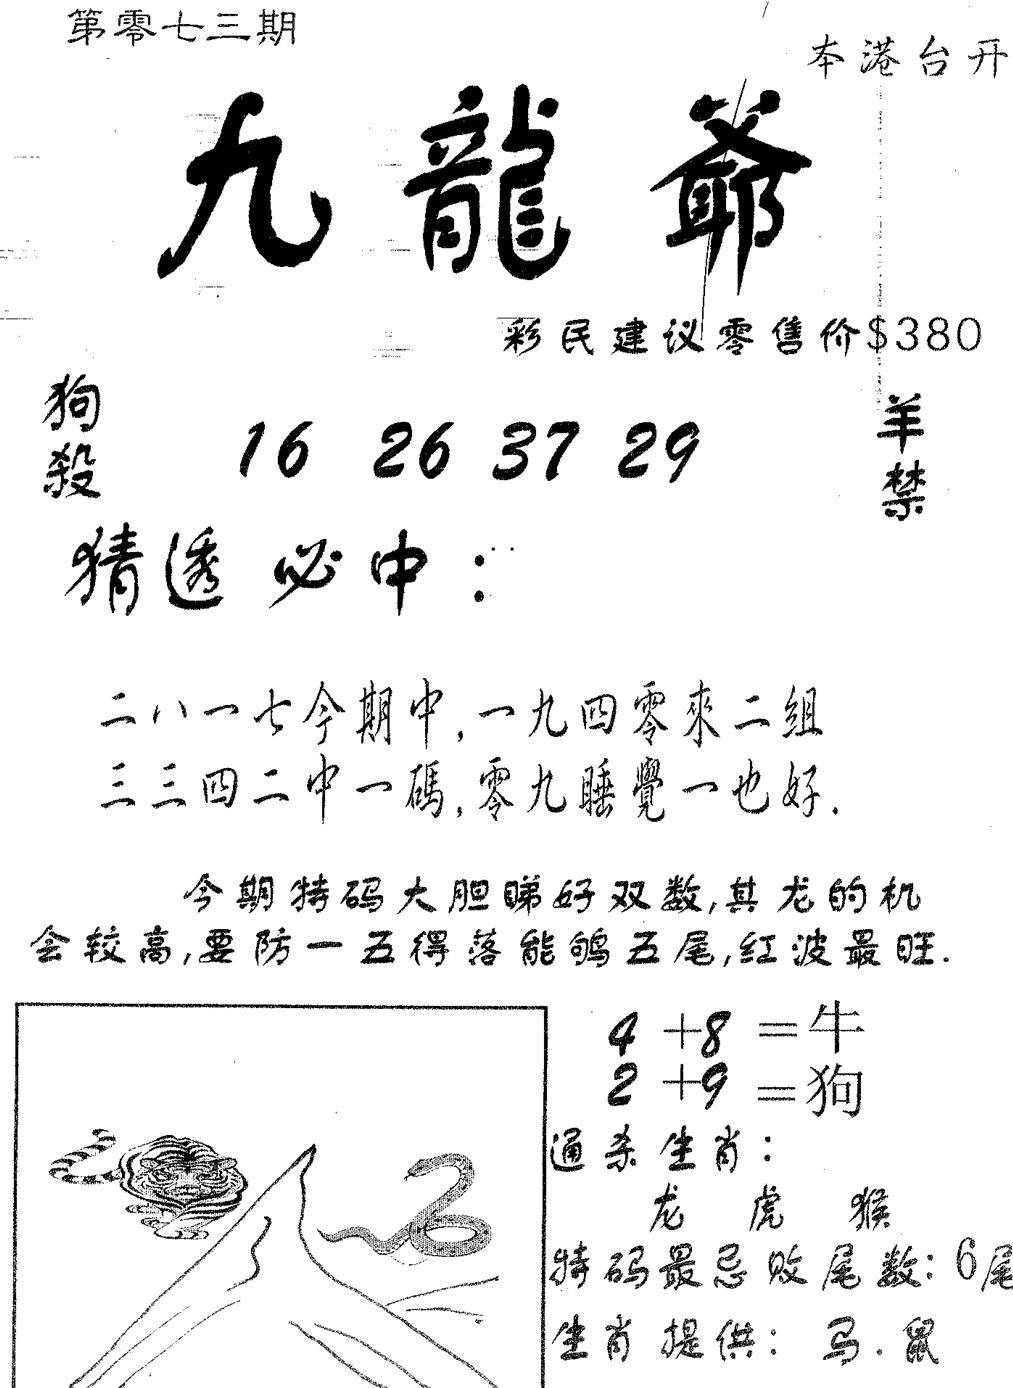 第零七三期
本港台开
九龍爺
彩民建议零售价$380
狗殺
16 26 37 29
羊禁
猜透必中：
二八一七今期中,一九四零來二组
三三四二中一碼,零九睡覺一也好.
今期特码大胆睇好双数,其龙的机
会较高,要防一五得落能鸲五尾,红波最旺.
4+8=牛
2+9=狗
通杀生肖：
龙 虎 猴
特码最忌败尾数：6尾
生肖提供：马.鼠